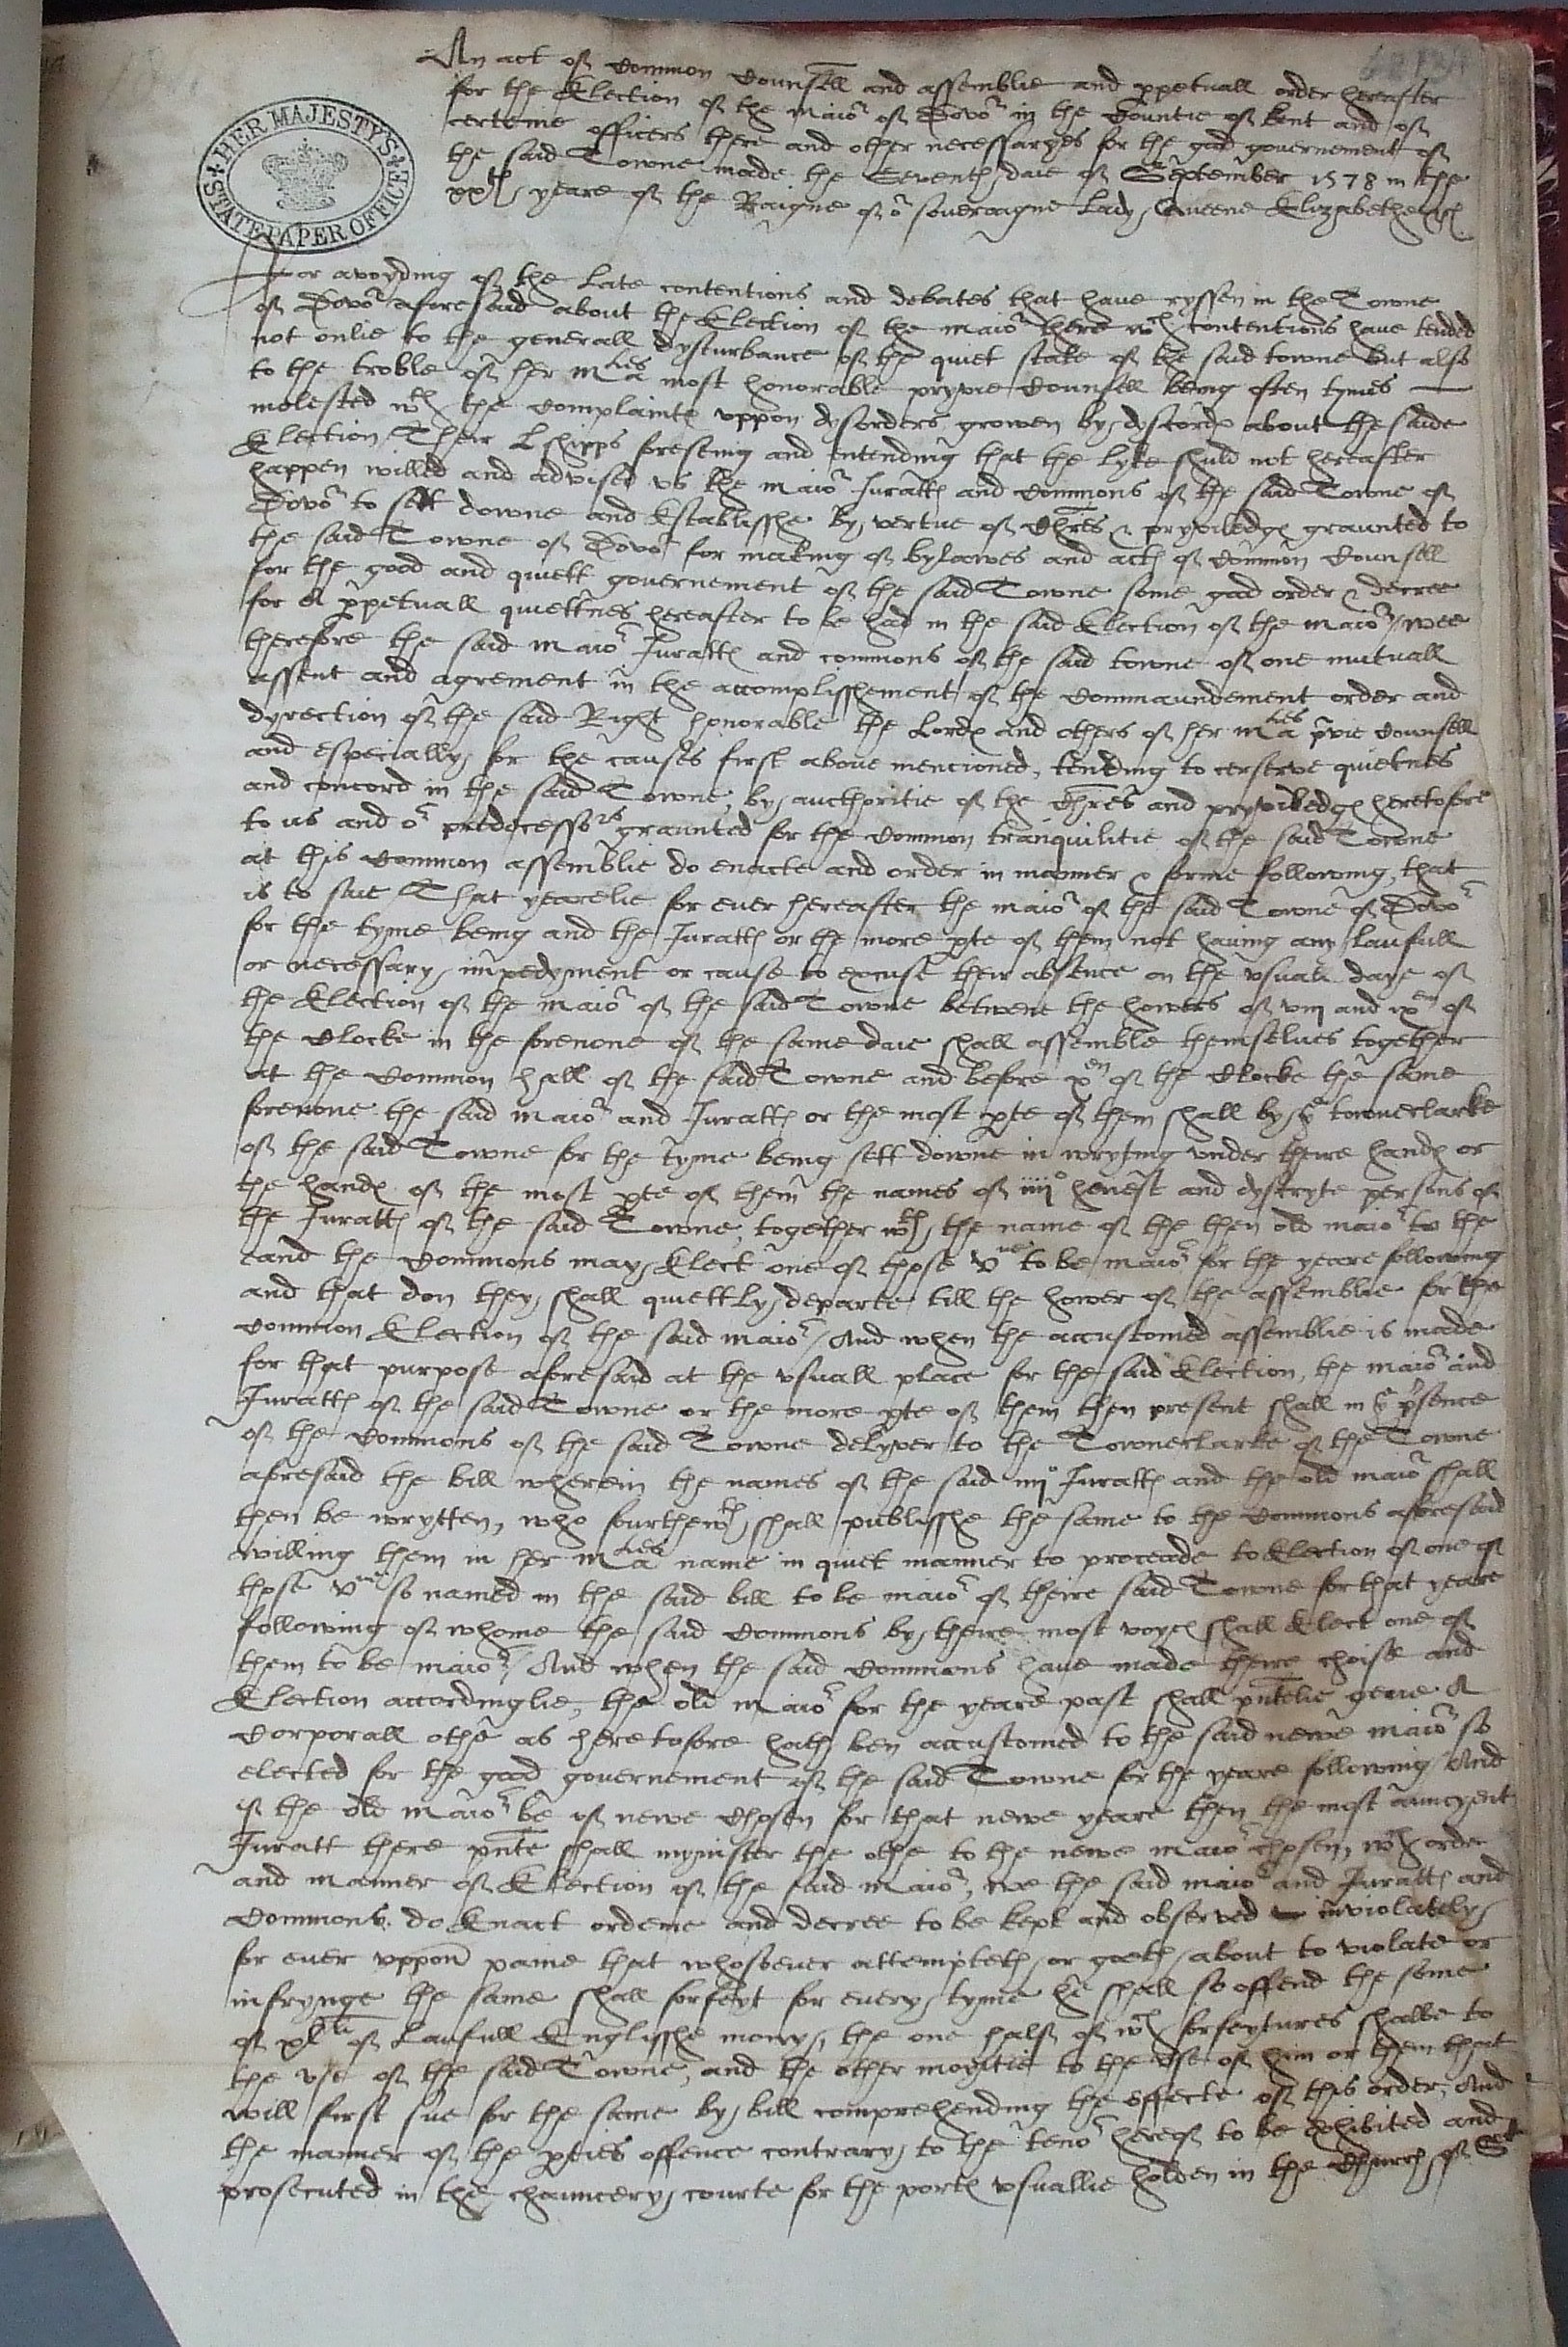 An act of Common Counsell and assemblie and ppetuall order hereafter
for the Election of the maior of Dovor in the Countie of kent and of
certeine officers there and other necessaryes for the good governement of
the said Towne made the Seventh daie of September 1578 in the
xxth yeare of the Raigne of or soveraigne Lady Queene Elizabethe &c
HER MAJESTY'S
STATE PAPER OFFICE
For avoyding of the late contentions and debates that have ryssen in the Towne
of Dovor aforesaid about the Election of the maior there wch contentions have tended
not onlie to the generall dysturbance of the quiet state of the said towne but also
to the troble of her maties most honorable pryvie Counsell being often tymes
molested wth the Complaints vppon dysorders growen by dyscords about the saide
Election Their Lshipps foreseing and intending that the lyke shuld not hereafter
happen willed and advised vs the maior Iuratts and Commons of the said Towne of
Dovor to sett downe and Establisshe by vertue of Chres & pryviledgs graunted to
the said Towne of Dovor for making of bylawes and acts of Common Counsell
for the good and quiett governement of the said Towne some good order & decree
for A ppetuall quiettnes hereafter to be had in the said Election of the maior / wee
therefore the said maior Iuratts and commons of the said towne of one mutuall
assent and agrement in the accomplisshement of the Commaundement order and
dyrection of the said Right honorable the Lords and others of her maties pvie Counsell
and especially for the causes first above mencioned, tending to cerserve quietnes
and concord in the said Towne, by authoritie of the Chres and pryviledgs heretofore
to us and or predecessors graunted for the Common tranquilitie of the said Towne
at this Common assemblie do enacte and order in manner & forme following, that
is to saie That yearelie for euer hereafter the maior of the said Towne of Dovor
for the tyme being and the Iuratts or the more pte of them not having any laufull
or necessary impedyment or cause to excuse their absence on the vsuall daye of
the Election of the maior of the said Towne betwene the howers of viii and ixen of
the Clocke in the forenone of the same daie shall assemble themselves together
at the Common hall of the said Towne and before xen of the Clocke the same
forenone the said maior and Iuratts or the most pte of them shall by ye townclarke
of the said Towne for the tyme being sett downe in wryting vnder theire hands or
the hands of the most pte of them the names of iiiio honest and dyscryte persons of
the Iuratts of the said Towne, together wth the name of the then old maior to the
eand the Commons may Elect one of those vue to be maior for the yeare following
and that don they shall quiettly departe till the hower of the assemblie for the
Common Election of the said maior / And when the accustomed assemblie is made
for that purpose aforesaid at the vsuall place for the said Election, the maior and
Iuratts of the said Towne or the more pte of them then present shall in ye psence
of the Commons of the said Towne delyver to the Towneclarke of the Towne
aforesaid the bill wherein the names of the said iiiio Iuratts and the old maior shall
then be wrytten, who fourthewth shall publisshe the same to the Commons aforesaid
willing them in her maties name in quiet manner to proceade to Election of one of
those vue so named in the said bill to be maior of theire said Towne for that yeare
following of whome the said Commons by theire most voycs shall Elect one of
them to be maior / And when the said Commons have made theire choise and
Election accordinglie, the old maior for the yeare past shall pntelie geve A
Corporall othe as heretofore hath ben accustomed to the said newe maior so
elected for the good governement of the said Towne for the yeare following / And
if the old maior be of newe Chosen for that newe yeare then the most auncyent
Iuratt there pnte shall mynister the othe to the newe maior chosen, wch order
and manner of Election of the said maior, we the said maior and Iuratts and
Commons do Enact ordeine and decree to be kept and observed inviolately
for ever vppon paine that whosoever attempteth or goeth about to violate or
infrynge the same shall forfeyt for every tyme he shall so offend the some
of xlli of Laufull Englisshe mony, the one half of wch forfeytures shalbe to
the vse of the said Towne, and the other moytie to the vse of him or them that
will first sue for the same by bill comprehending the effecte of this order, And
the manner of the pties offence contrary to the tenor hereof to be exhibited and
prosecuted in the chauncery courte for the ports vsuallie holden in the Church of St